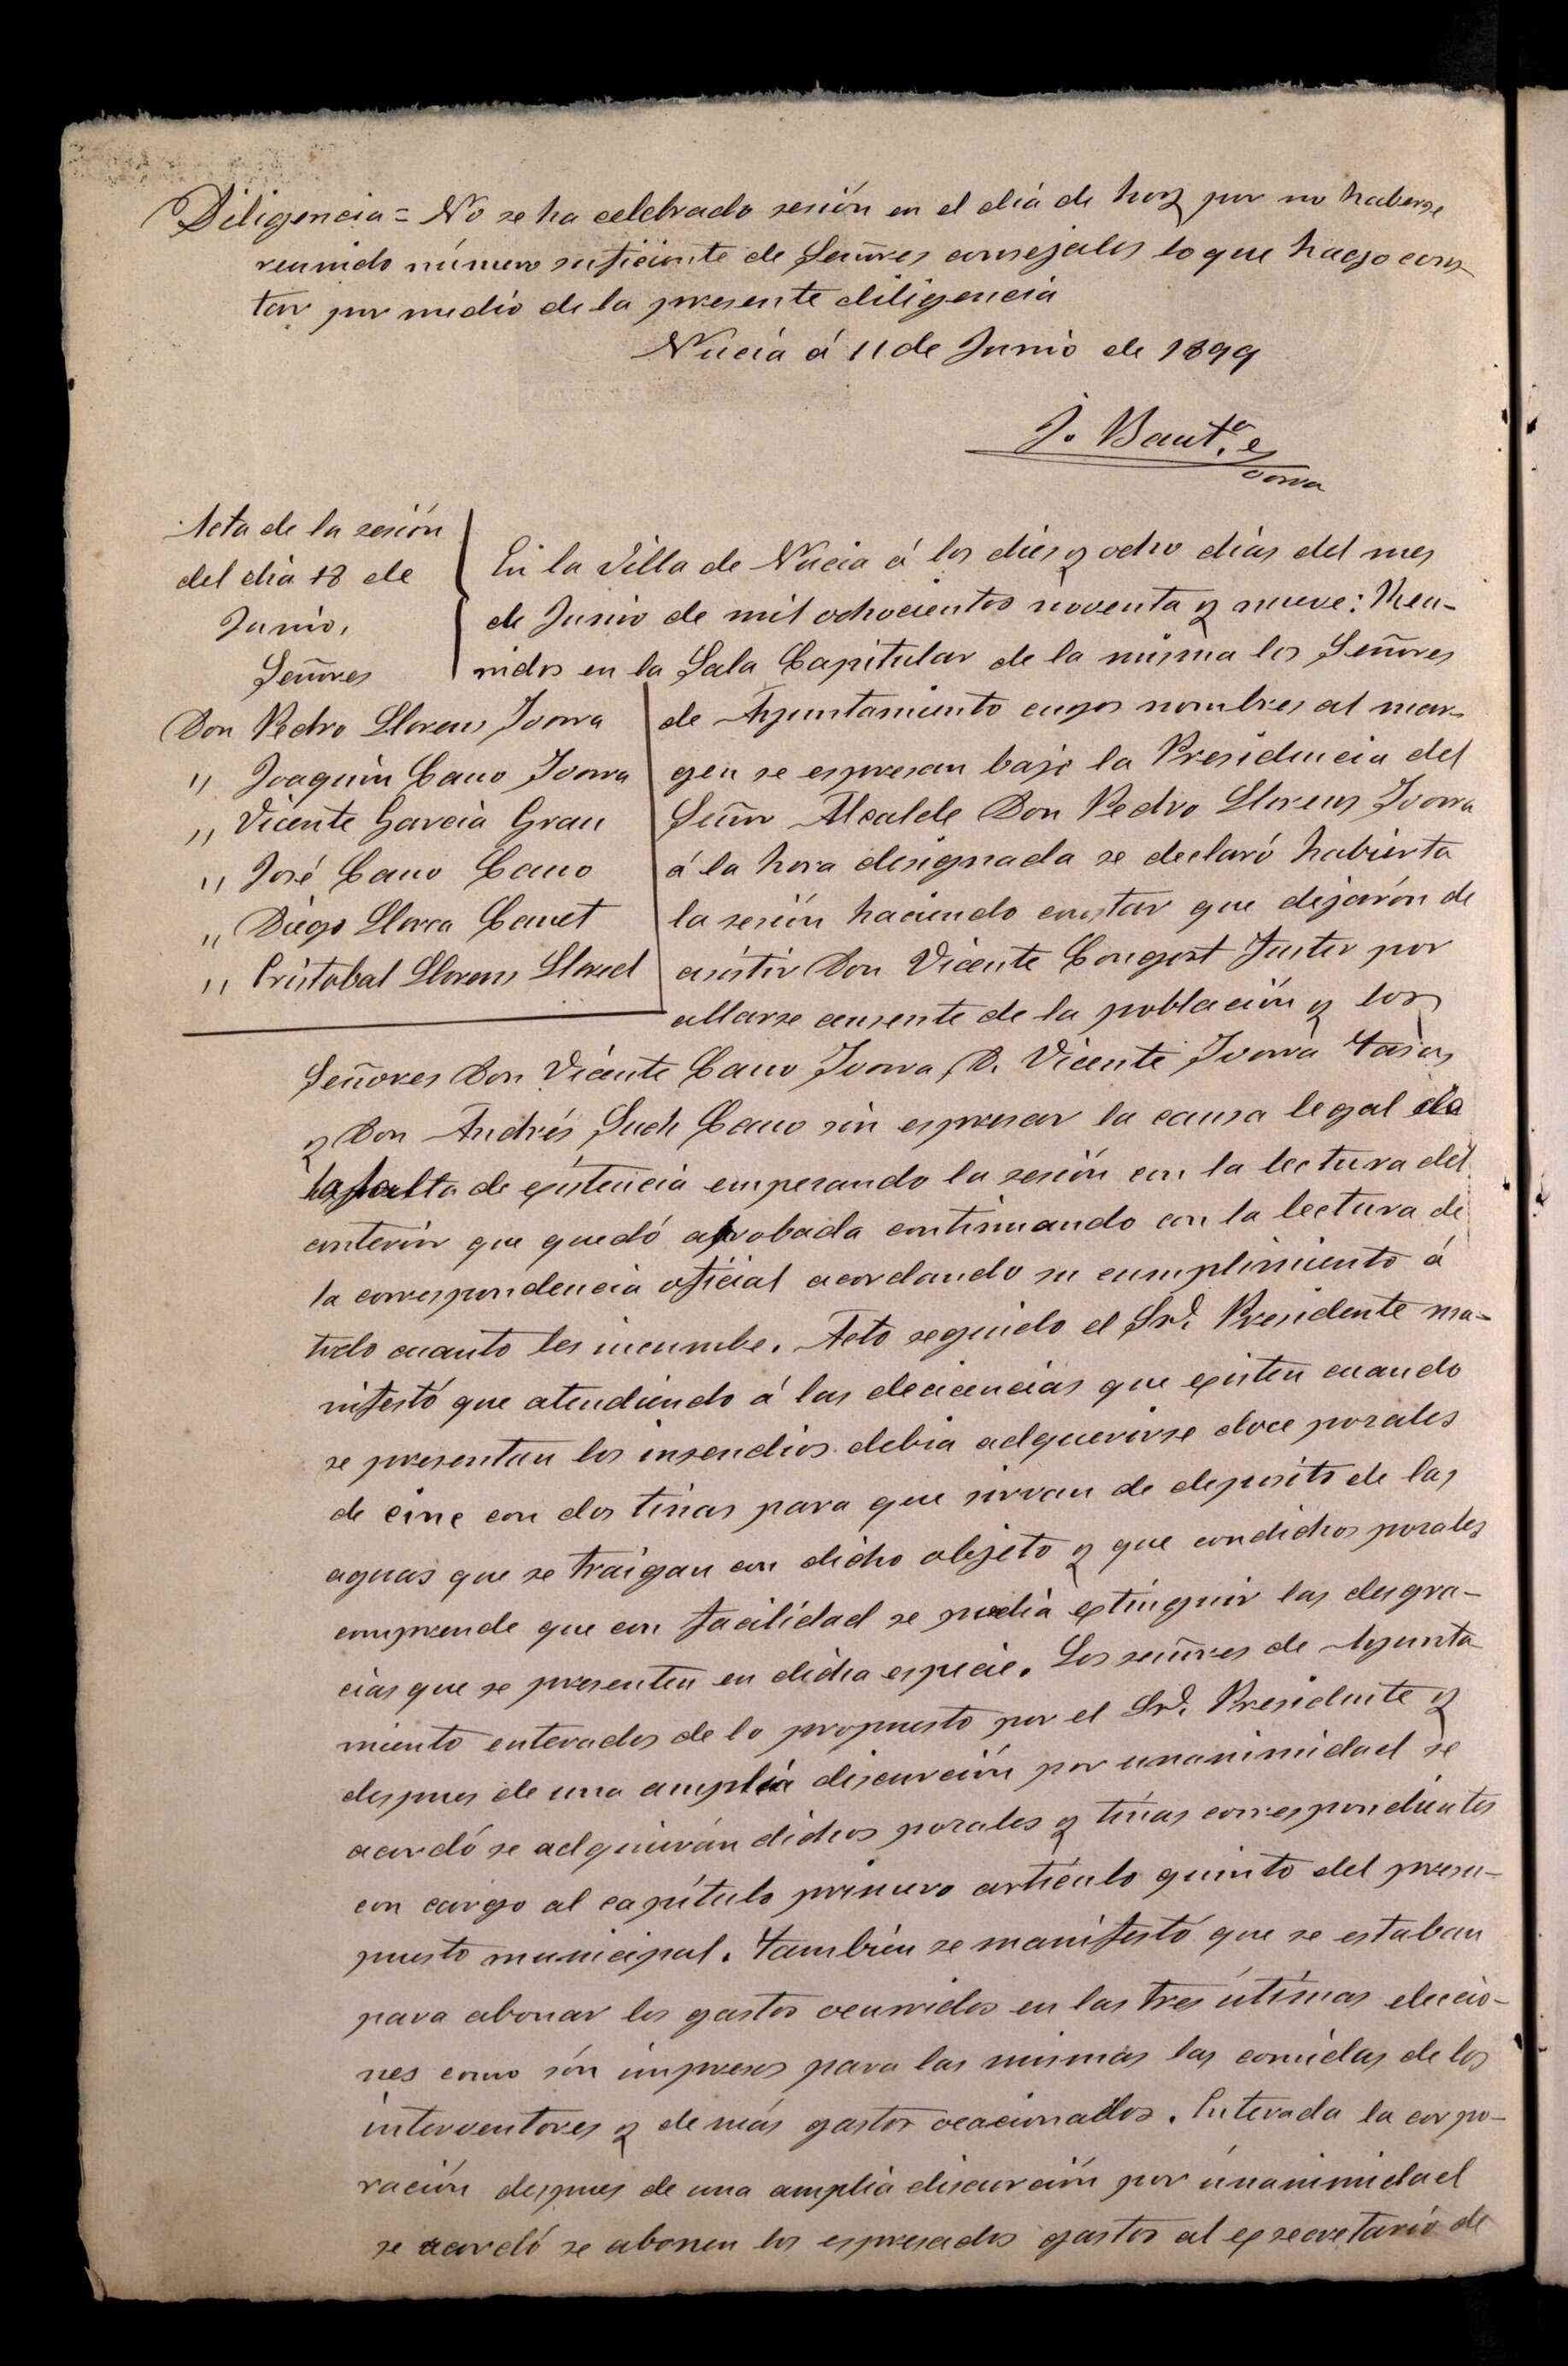 Diligencia = No se ha celebrado sesión en el día de hoy por no haberse
reunido número suficiente de Señores consejales lo que hago cons-
tar por medio de la presente diligencia
Nucia á 11 de Junio de 1899
J. Baut.ª
Acta de la sesión
del dia 18 de
Junio.
Señores
Don Pedro Llorens Ivorra
" Joaquin Cano Ivorra
" Vicente Garcia Grau
" José Cano Cano
" Diego Llorca Canet
" Cristobal Llorens Lloret
En la Villa de Nucia á los dies y ocho días del mes
de Junio de mil ochocientos noventa y nueve: Reu-
nidos en la Sala Capitular de la misma los Señores
de Ayuntamiento cuyos nombres al mar-
gen se espresan bajo la Presidencia del
Señor Alcalde Don Pedro Llorens Ivorra
á la hora designada se declaró habierta
la sesión haciendo constar que dejarón de
asistir Don Vicente Congost Juster por
allarse ausente de la población y los
Señores Don Vicente Cano Ivorra, D. Vicente Ivorra
y Don Andrés Such Cano sin espresar la causa legal de
la falta de existencia empezando la sesión con la lectura del
anterior que quedó aprobada continuando con la lectura de
la correspondencia oficial acordando su cumplimiento á
todo cuanto les incumbe. Acto seguido el Sr. Presidente ma-
nifestó que atendiendo á las que existen cuando
se presentan los insendios debia adquerirse doce pozales
de cinc con dos tinas para que sirvan de deposito de las
aguas que se traigan con dicho objeto y que con dichos pozales
comprende que con facilidad se podia extinguir las desgra-
cias que se presenten en dicha especie. Los señores de Ayunta-
miento enterados de lo propuesto por el Sr. Presidente y
despues de una amplia discurción por unanimidad se
acordó se adquirán dichos pozales y tinas correspondientes
con cargo al capítulo primero artículo quinto del presu-
puesto municipal. También se manifestó que se estaban
para abonar los gastos ocurridos en las tres útimas eleccio-
nes como són impresos para las mismas las comidas de los
interventores y demás gastos ocacionados. Enterada la corpo-
ración despues de una amplia discurción por únanimidad
se acordó se abonen los espresados gastos al exsecretario de